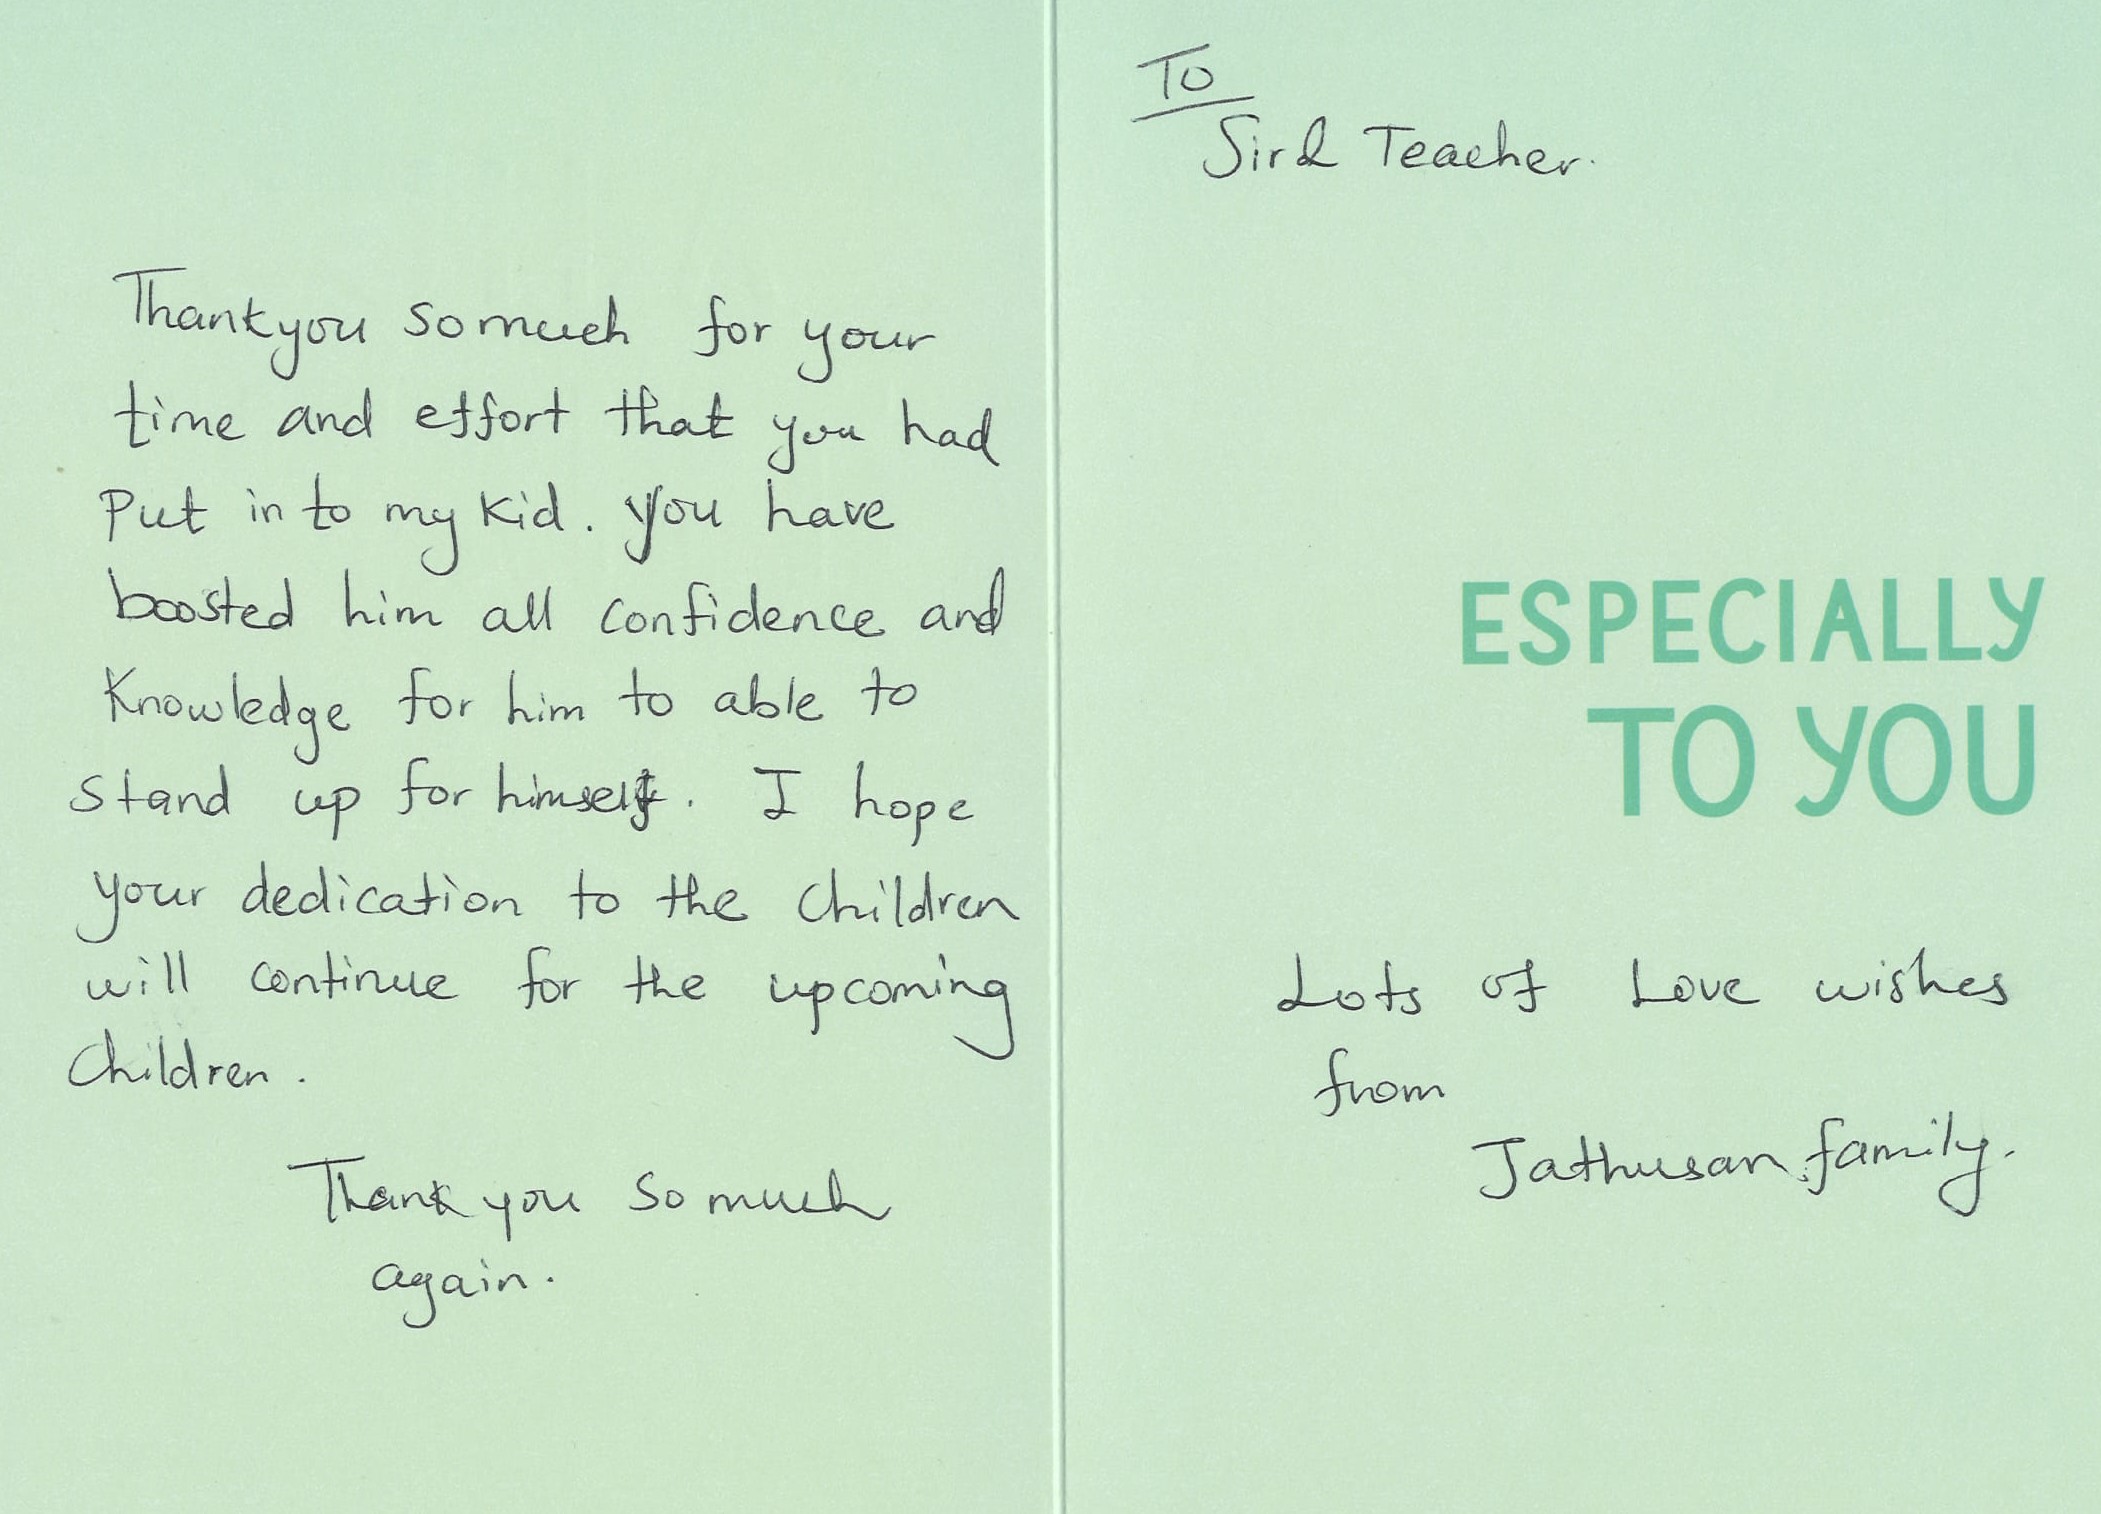 Thankyou so much for your
time and effort that you had
Put in to my kid. You have
boosted him all confidence and
Knowledge for him to able to
stand up for himself. I hope
your dedication to the children
will continue for the upcoming
Children.
Thank you so much
again.
To
Sir & Teacher.
ESPECIALLY
TO YOU
Lots of Love wishes
from
Jathusan family.